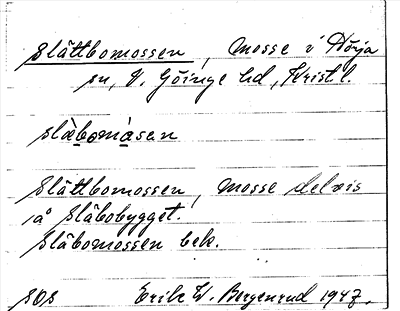 Slättbomossen, mosse i Nörja
sn, V. Göinge hd, Kristl.
släbomåsen
Slättbomossen, mosse delvis
å Släbobygget.
Släbomossen bek.
SOS Erik W. Bergenrud 1947.